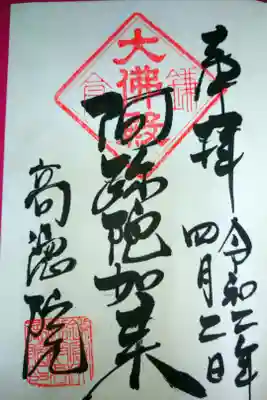 奉拝
令和二年
四月二日
大佛殿
阿弥陀如来
高徳院